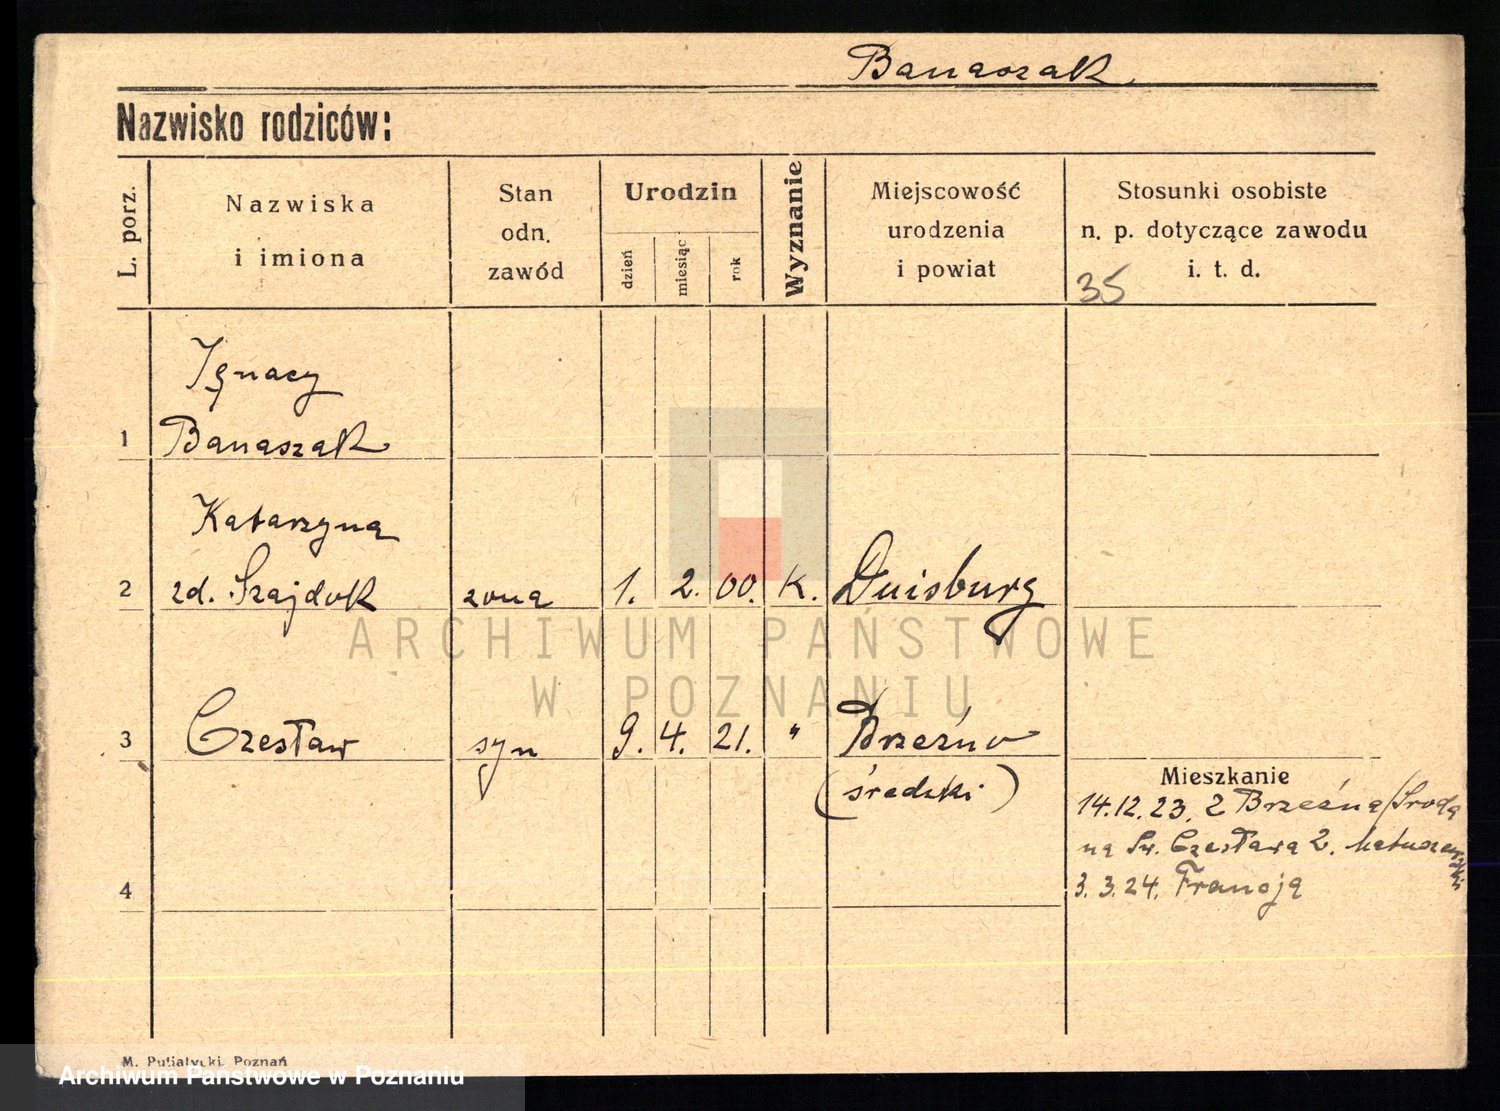 Banaszak
Nazwisko rodziców:
L. porz.
Nazwiska
i imiona
Stan
odn.
zawód
Urodzin
dzień
miesiąc
rok
Wyznanie
Miejscowość
urodzenia
i powiat
Stosunki osobiste
n. p. dotyczące zawodu
i. t. d.
35
Ignacy
1 Banaszak
Katarzyna
2 zd. Szajduk żona 1. 2. 00. K. Duisburg
ARCHIWUM PAŃSTWOWE
W POZNANIU
3 Czesław syn 9. 4. 21. " Brzeźno
(średzki)
Mieszkanie
14.12.23. z Brzeźna/Środa
na Św. Czesława 2.
3.3.24. Francja
4
M. Putiatycki, Poznań
Archiwum Państwowe w Poznaniu